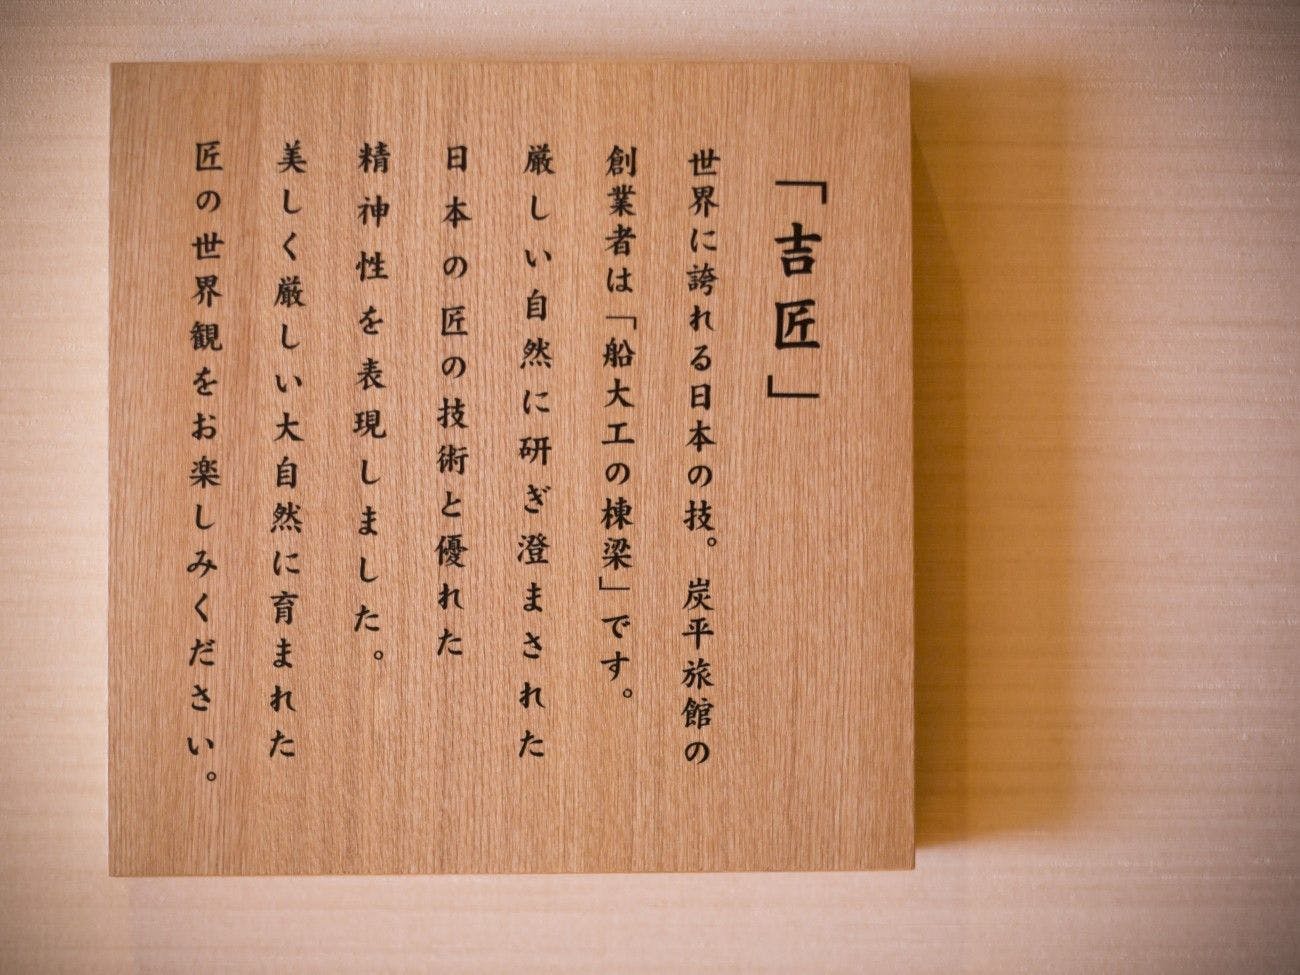 「吉匠」
世界に誇れる日本の技。炭平旅館の
創業者は「船大工の棟梁」です。
厳しい自然に研ぎ澄まされた
日本の匠の技術と優れた
精神性を表現しました。
美しく厳しい大自然に育まれた
匠の世界観をお楽しみください。